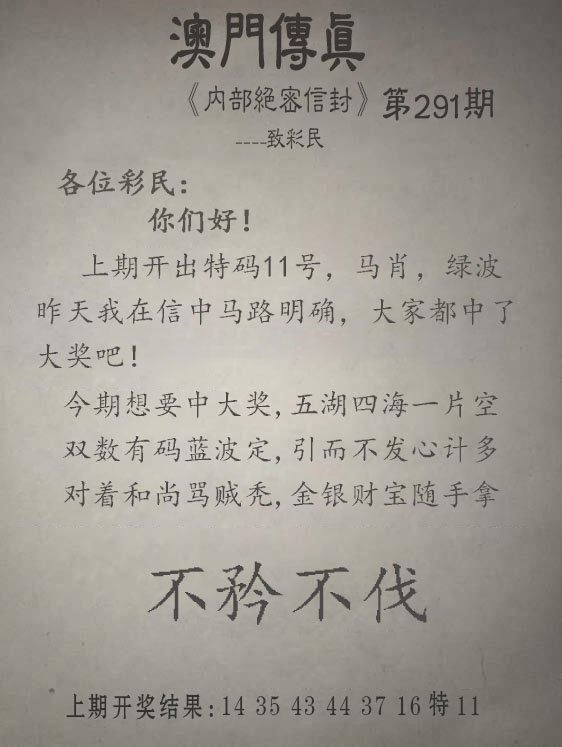 澳門傳眞
《内部絕密信封》第291期
----致彩民
各位彩民：
你们好！
上期开出特码11号，马肖，绿波
昨天我在信中马路明确，大家都中了
大奖吧！
今期想要中大奖,五湖四海一片空
双数有码蓝波定,引而不发心计多
对着和尚骂贼秃,金银财宝随手拿
不矜不伐
上期开奖结果:14 35 43 44 37 16 特 11